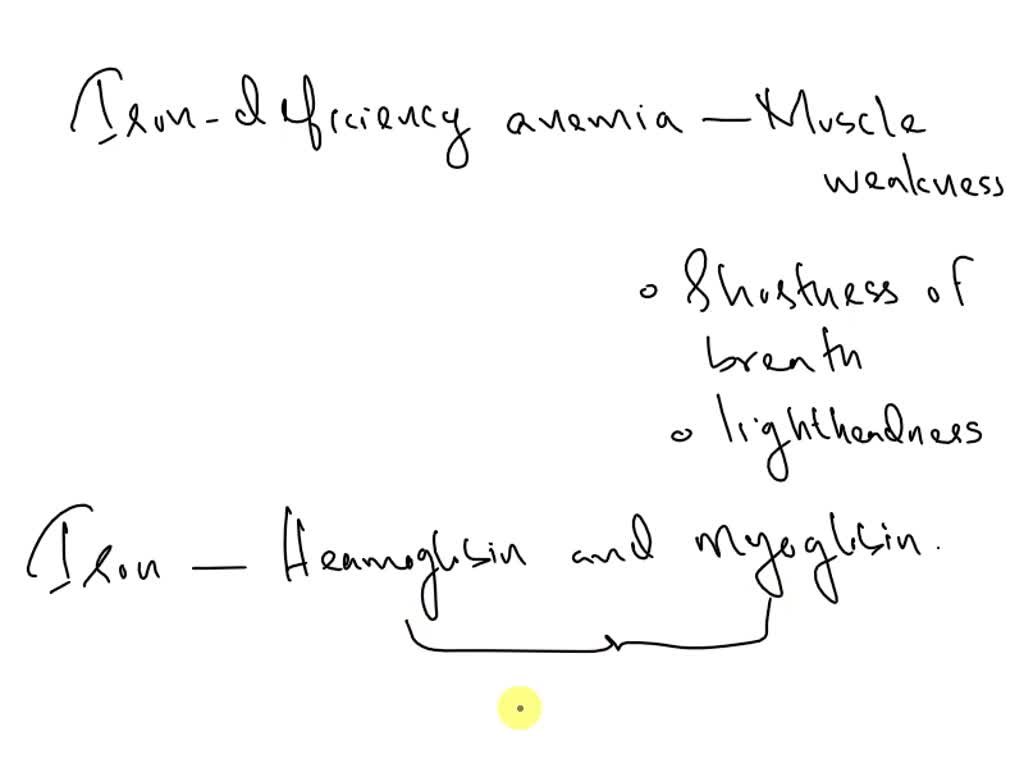 Iron-deficiency anemia — Muscle
weakness
• Shortness of
breath
• lightheadness
Iron — Heamoglobin and myoglobin.